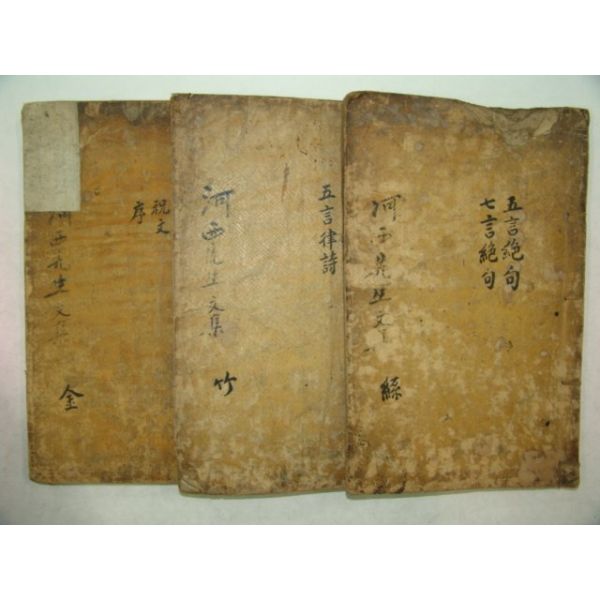 五言絶句
七言絶句
河西先生文
絲
五言律詩
河西先生文集
竹
祝文
序
河西先生文集
金